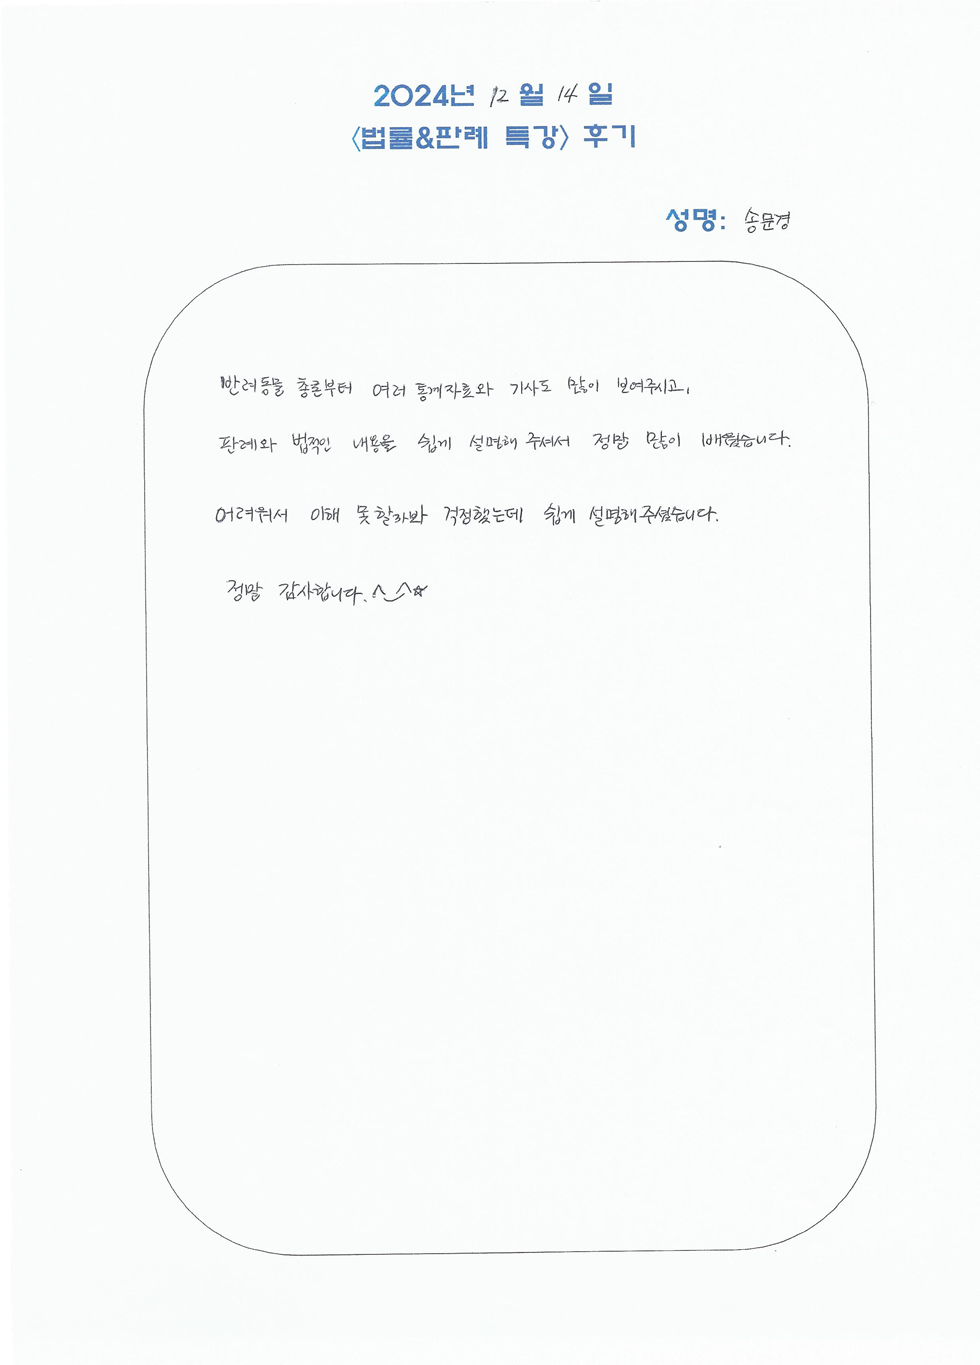 2024년 12월 14일
<법률&판례 특강> 후기
성명: 송문경
반려동물 총론부터 여러 통계자료와 기사도 많이 보여주시고,
판례와 법적인 내용을 쉽게 설명해 주셔서 정말 많이 배웠습니다.
어려워서 이해 못할까봐 걱정했는데 쉽게 설명해주셨습니다.
정말 감사합니다. ^‿^☆